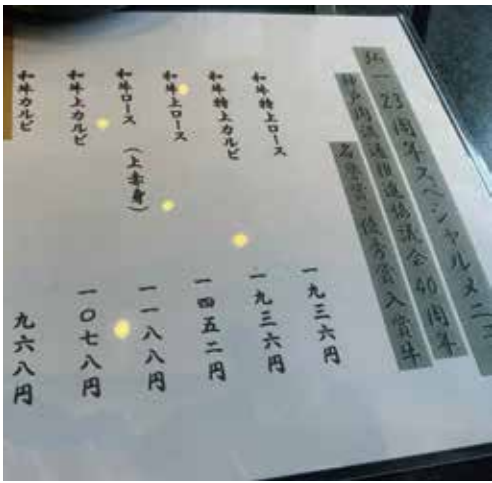 23周年スペシャルメニュ
神戸肉流通推進協議会40周年
名誉賞・優秀賞入賞牛
和牛特上ロース 一九三六円
和牛特上カルビ 一九三六円
和牛上ロース 一四五二円
和牛ロース（上赤身） 一一八八円
和牛上カルビ 一〇七八円
和牛カルビ 九六八円